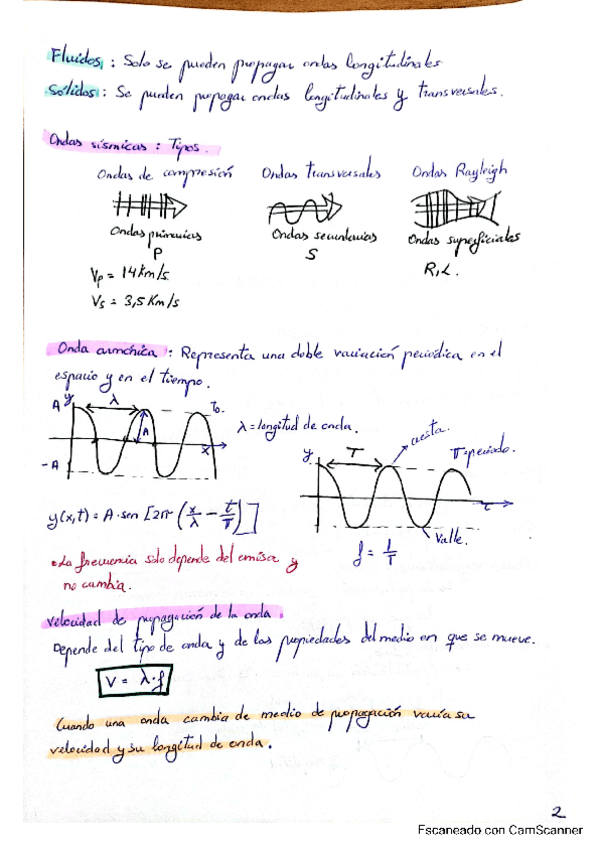 Fluidos : Solo se pueden propagar ondas longitudinales
Sólidos : Se pueden propagar ondas longitudinales y transversales.
Ondas sísmicas : Tipos.
Ondas de compresión Ondas transversales Ondas Rayleigh
Ondas primarias Ondas secundarias Ondas superficiales
P S R, L.
Vp = 14 km/s
Vs = 3,5 Km/s
Onda armónica : Representa una doble variación periódica en el
espacio y en el tiempo.
A y λ To.
A
x
-A
λ = longitud de onda.
cresta.
y T T = periodo.
t
Valle.
y(x,t) = A · sen [2π (x/λ - t/T)]
f = 1/T
• La frecuencia solo depende del emisor y
no cambia.
Velocidad de propagación de la onda.
Depende del tipo de onda y de las propiedades del medio en que se mueve.
V = λ · f
Cuando una onda cambia de medio de propagación varía su
velocidad y su longitud de onda.
2
Escaneado con CamScanner